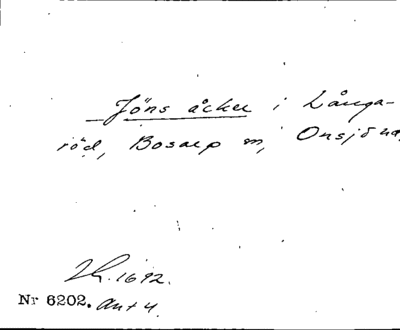 Jöns åcker i Långa-
röd, Bosarp m, Onsjö ha
1692.
Nr 6202. Ant 4.